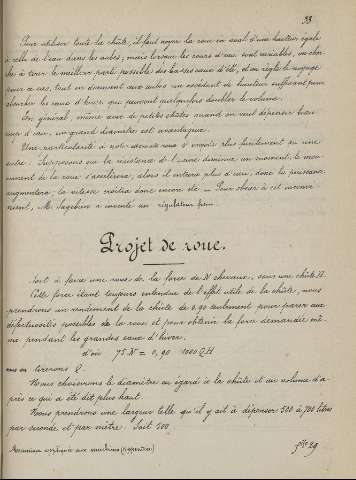 33
Pour utiliser toute la chûte, il faut noyer la roue en aval d'une hauteur égale
à celle de l'eau dans les aubes; mais lorsque les cours d'eau sont variables, on cher-
che à tirer le meilleur parti possible des basses eaux d'été, et on règle le noyage
pour ce cas, tout en donnant aux aubes un excédent de hauteur suffisant pour
absorber les eaux d'hiver qui peuvent quelquefois doubler le volume.
En général, même avec de petites chûtes quand on veut dépenser beau-
coup d'eau, un grand diamètre est avantageux.
Une particularité à noter de cette roue s'emporte plus facilement qu'une
autre. Supposons que la résistance de l'usine diminue un moment, le mou-
vement de la roue s'accélérera, alors il entrera plus d'eau, donc la puissance
augmentera; la vitesse croîtra donc encore etc — Pour obvier à cet inconvé-
nient, M. Sagebien a inventé un régulateur frein.
Projet de roue.
Soit à faire une roue de la force de N chevaux, sous une chûte H.
Cette force étant toujours entendue de l'effet utile de la chûte, nous
prendrons un rendement de la chûte de 0,90 seulement pour parer aux
défectuosités possibles de la roue et pour obtenir la force demandée mê-
me pendant les grandes eaux d'hiver.
d'où 75 N = 0,90 1000 Q H
nous en tirerons Q.
Nous choisirons le diamètre eu égard à la chûte et au volume d'a-
près ce qui a été dit plus haut.
Nous prendrons une largeur telle qu'il y ait à dépenser 500 à 700 litres
par seconde et par mètre. Soit 500.
Mécanique appliquée aux machines
flle 29